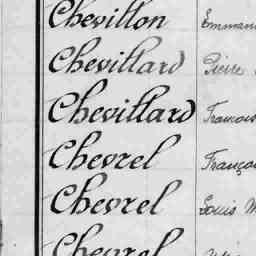 Chevillon Emman
Chevillard Pierre
Chevillard François
Chevrel Franço
Chevrel Louis M
Chevrel